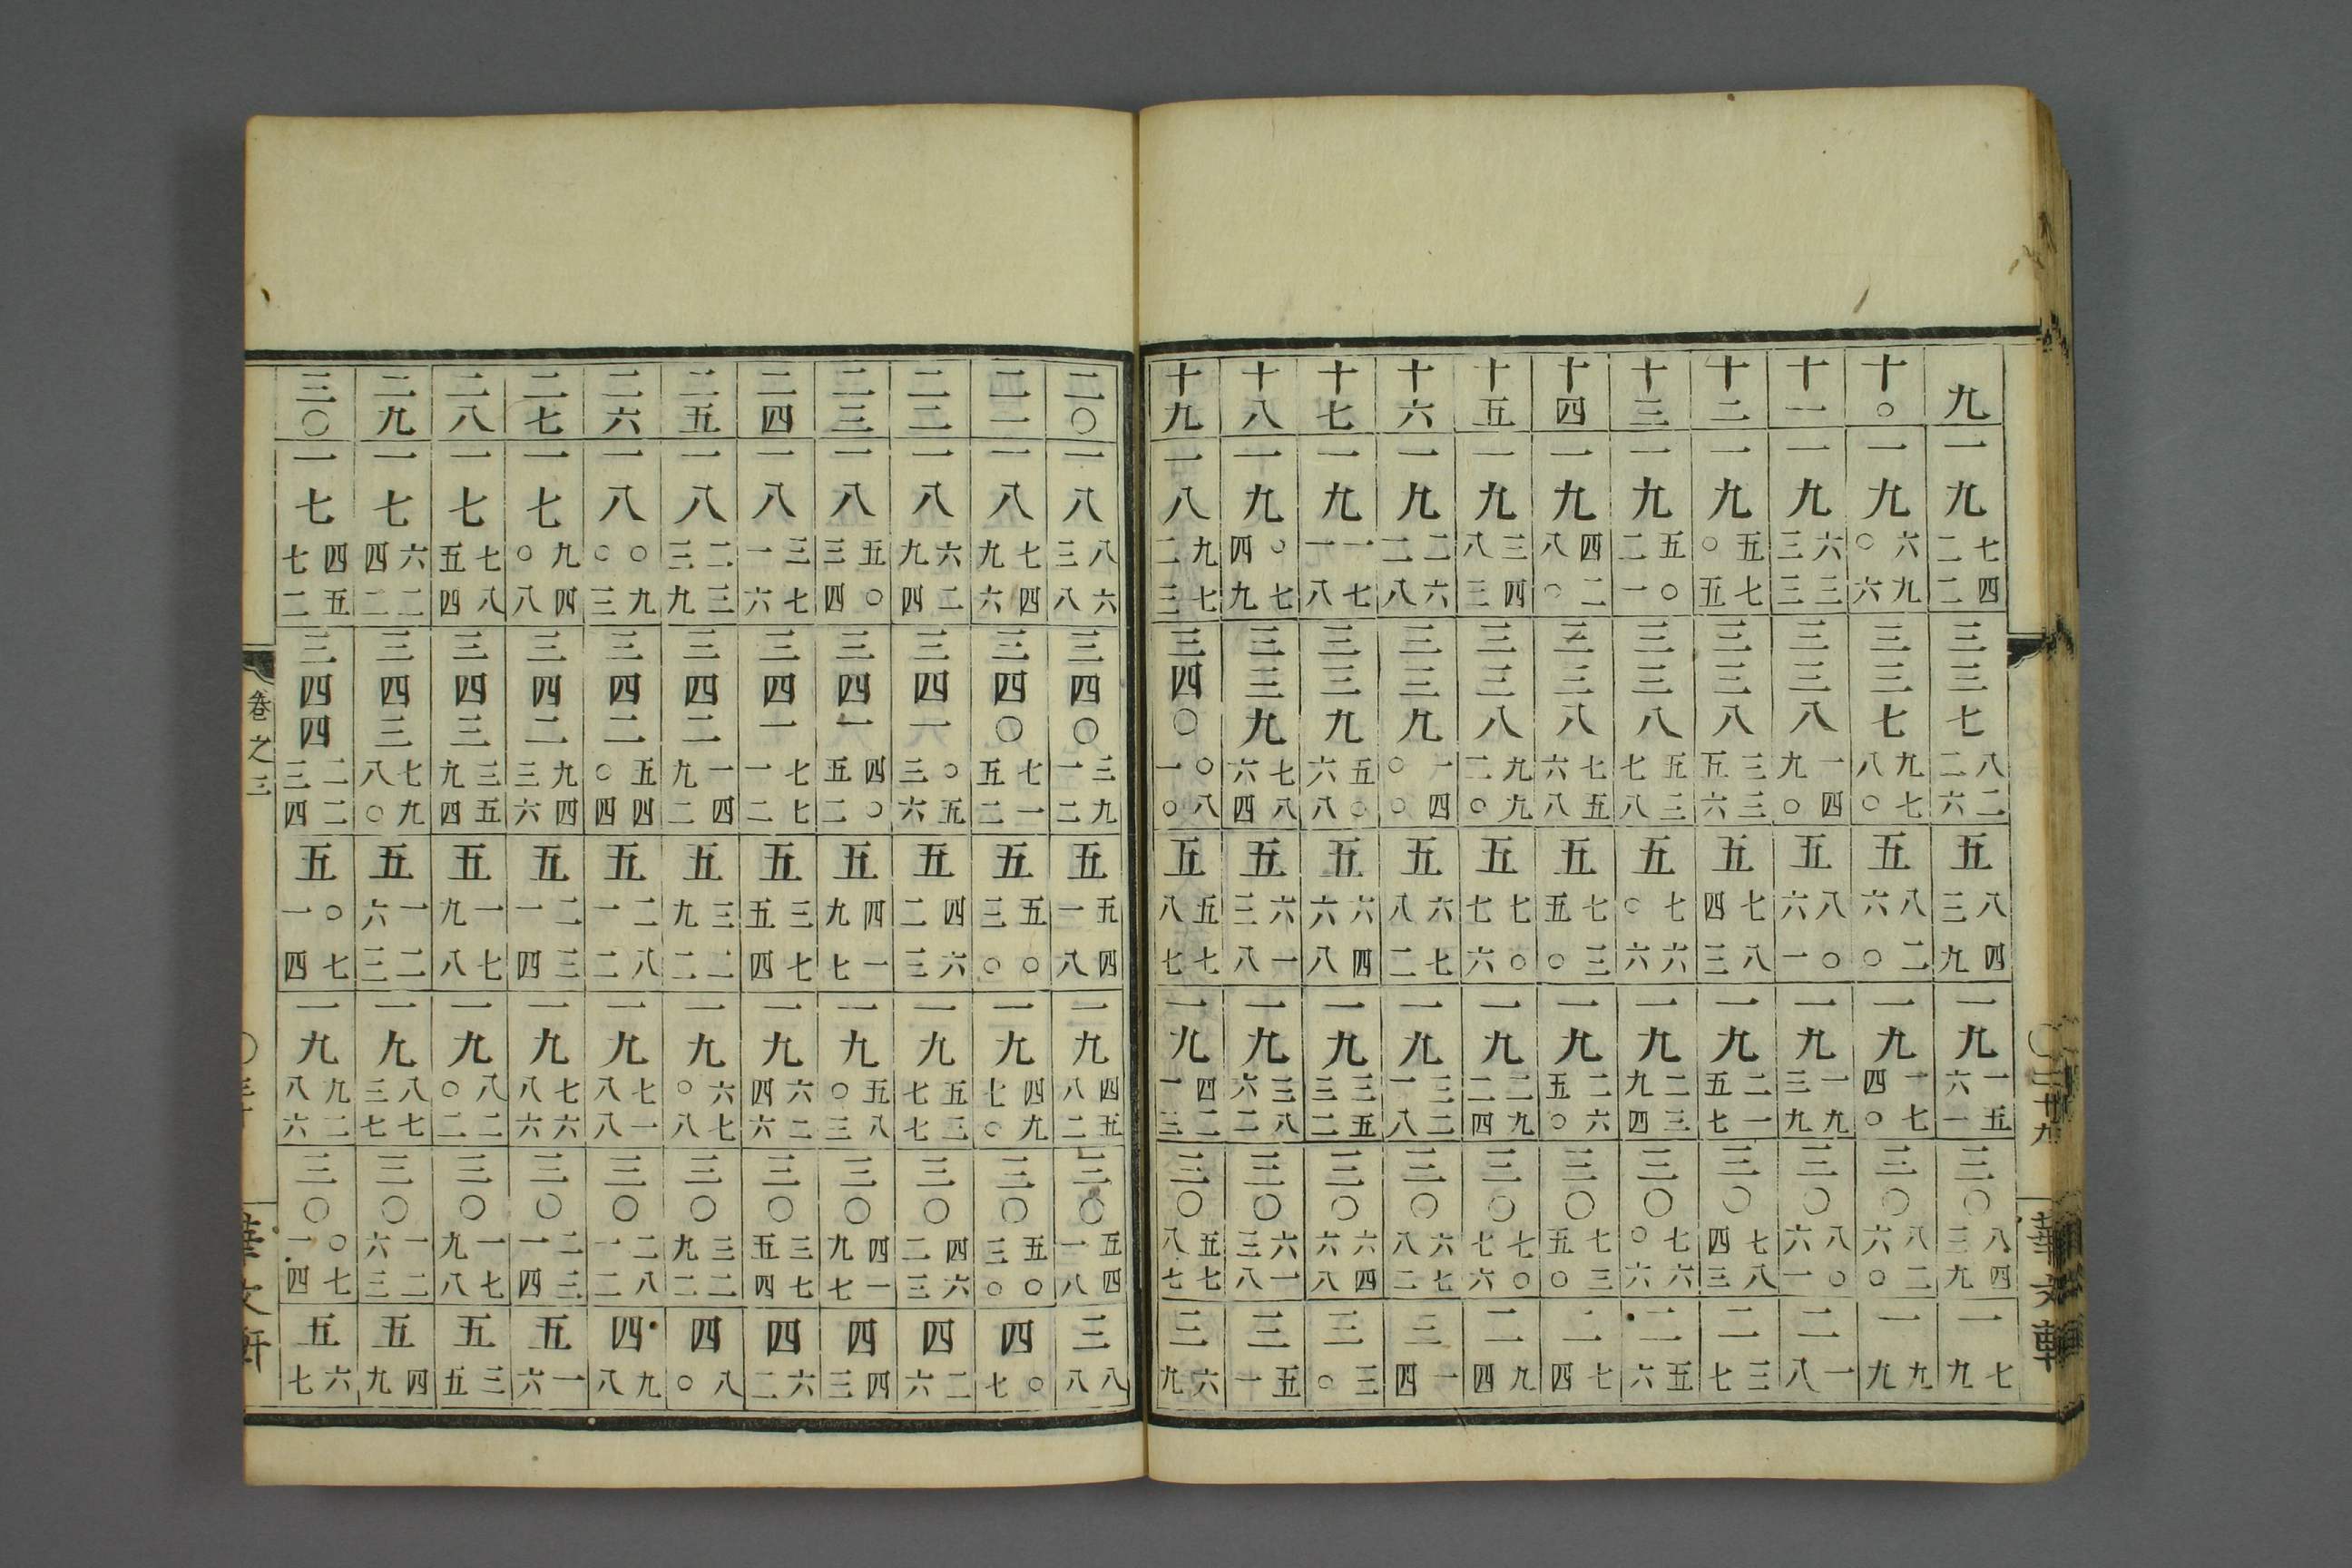 九 一九七四二二 三三七八二二六 五八四三九 一九一五六一 三〇八四三九 一七九
十〇 一九六九〇六 三三七九七八〇 五八二六〇 一九一七四〇 三〇八二六〇 一九九
十一 一九六三三三 三三八一四九〇 五八〇六一 一九一九三九 三〇八〇六一 二一八
十二 一九五七〇五 三三八三三五六 五七八四三 一九二一五七 三〇七八四三 二三七
十三 一九五〇二一 三三八五三七八 五七六〇六 一九二三九四 三〇七六〇六 二五六
十四 一九四二八〇 三三八七五六八 五七三五〇 一九二六五〇 三〇七三五〇 二七四
十五 一九三四八三 三三八九九二〇 五七〇七六 一九二九二四 三〇七〇七六 二九四
十六 一九二六二八 三三九一四〇〇 五六七八二 一九三二一八 三〇六七八二 三一四
十七 一九一七一八 三三九五〇六八 五六四六八 一九三五三二 三〇六四六八 三三〇
十八 一九〇七四九 三三九七八六四 五六一三八 一九三八六二 三〇六一三八 三五一
十九 一八九七二三 三四〇〇八一〇 五五七八七 一九四二一三 三〇五七八七 三六九
三十九
華文軒
二〇 一八八六三八 三四〇三九一二 五五四一八 一九四五八二 三〇五四一八 三八八
二一 一八七四九六 三四〇七一五二 五五〇三〇 一九四九七〇 三〇五〇三〇 四〇七
二二 一八六二九四 三四一〇五三六 五四六二三 一九五三七七 三〇四六二三 四二六
二三 一八五〇三四 三四一四〇五二 五四一九七 一九五八〇三 三〇四一九七 四四三
二四 一八三七一六 三四一七七一二 五三七五四 一九六二四六 三〇三七五四 四六二
二五 一八二三三九 三四二一四九二 五三二九二 一九六七〇八 三〇三二九二 四八〇
二六 一八〇九〇三 三四二五四〇四 五二八一二 一九七一八八 三〇二八一二 四九八
二七 一七九四〇八 三四二九四三六 五二三一四 一九七六八六 三〇二三一四 五一六
二八 一七七八五四 三四三三五九四 五一七九八 一九八二〇二 三〇一七九八 五三五
二九 一七六二四二 三四三七九八〇 五一二六三 一九八七三七 三〇一二六三 五四九
三〇 一七四五七二 三四四二二三四 五〇七一四 一九九二八六 三〇〇七一四 五六七
卷之三